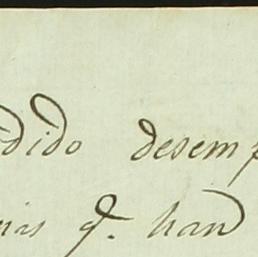 dido desemp
nis q.e han